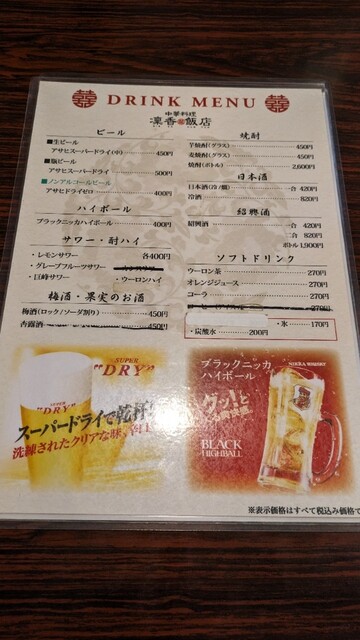 囍 DRINK MENU 囍
中華料理
凜香飯店
ビール
■生ビール
アサヒスーパードライ(中) 450円
■瓶ビール
アサヒスーパードライ 500円
■ノンアルコールビール
アサヒドライゼロ 400円
ハイボール
ブラックニッカハイボール 400円
サワー・酎ハイ
・レモンサワー 各400円
・グレープフルーツサワー
・巨峰サワー ・ウーロンハイ
梅酒・果実のお酒
梅酒(ロック/ソーダ割り) 450円
杏露酒 450円
焼酎
芋焼酎(グラス) 450円
麦焼酎(グラス) 450円
焼酎(ボトル) 2,600円
日本酒
日本酒(冷/燗) 一合 420円
冷酒 820円
紹興酒
紹興酒 一合 420円
二合 820円
ボトル 1,900円
ソフトドリンク
ウーロン茶 270円
オレンジジュース 270円
コーラ 270円
270円
・氷 170円
・炭酸水 200円
SUPER
"DRY"
SUPER
"DRY"
スーパードライで乾杯!
洗練されたクリアな味、辛口
ブラックニッカ
ハイボール
NIKKA WHISKY
グッ!と
BLACK
HIGHBALL
※表示価格はすべて税込み価格で